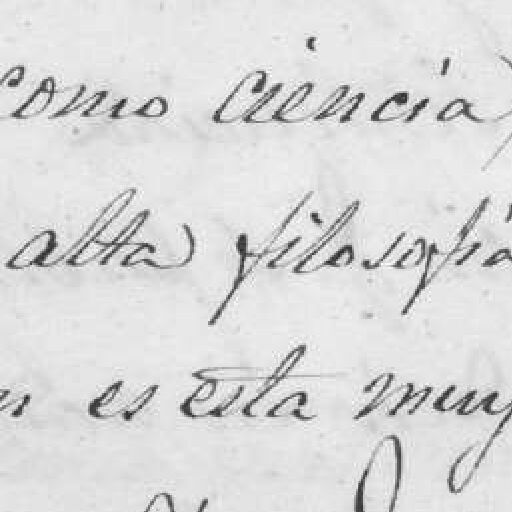 como ciencia,
alta filosofía
es esta muy